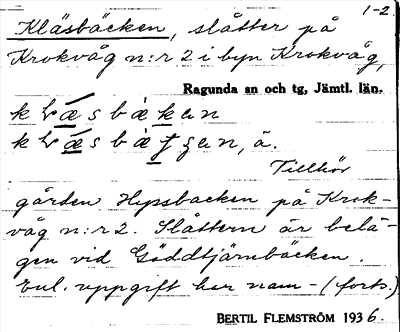 1-2.
Kläsbäcken, slåtter på
Krokvåg n:r 2 i byn Krokvåg,
Ragunda sn och tg, Jämtl. län.
Tillhör
gården Hypsbacken på Krok-
våg n:r 2. Slåttern är belä-
gen vid Göddtjärnbäcken.
Enl. uppgift har nam- (forts.)
BERTIL FLEMSTRÖM 1936.